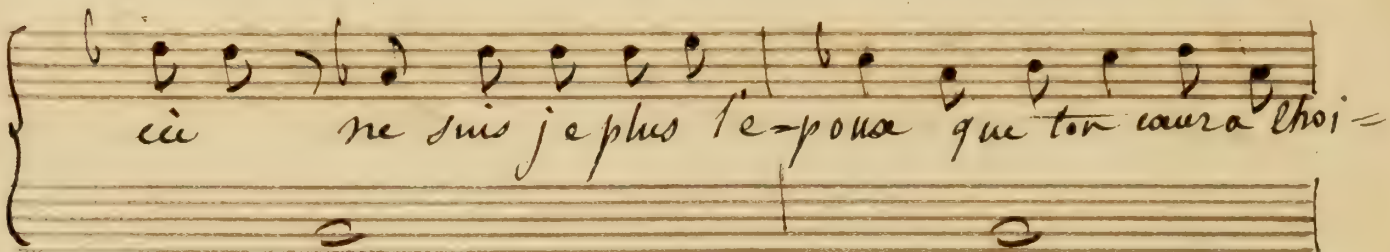 cie ne suis je plus l'e=poux que ton cœur a choi=